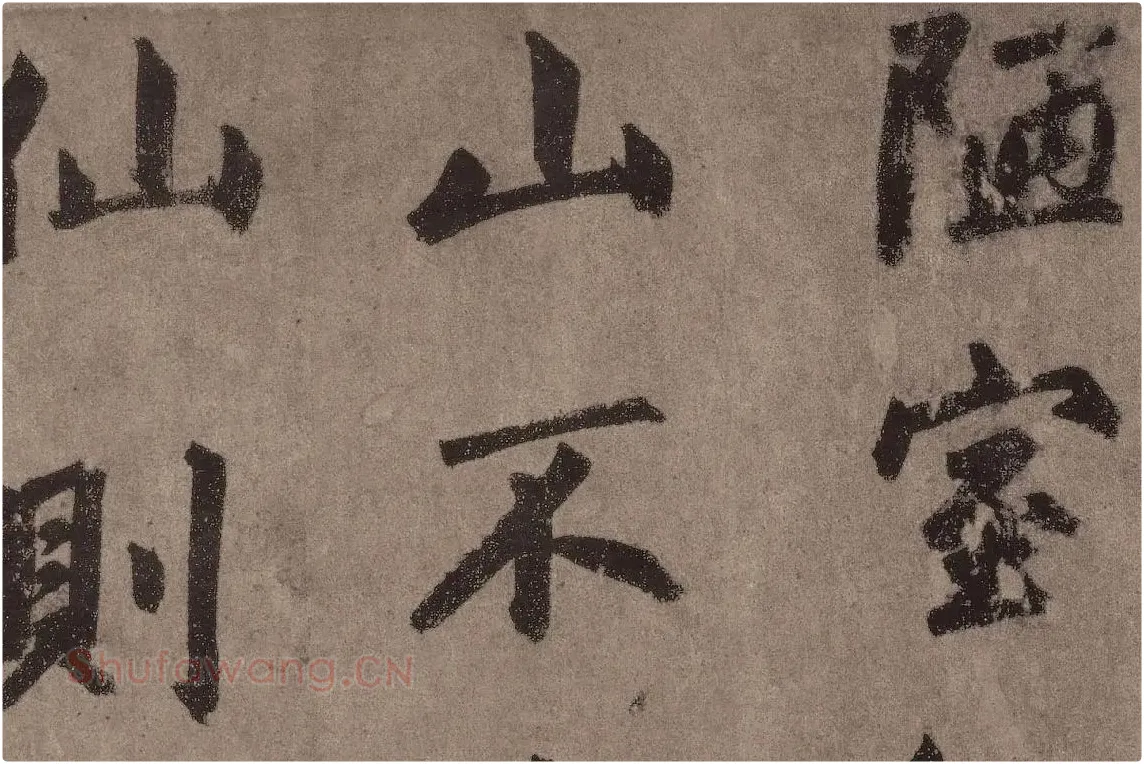 陋室
山不
仙則
Shufawang.CN